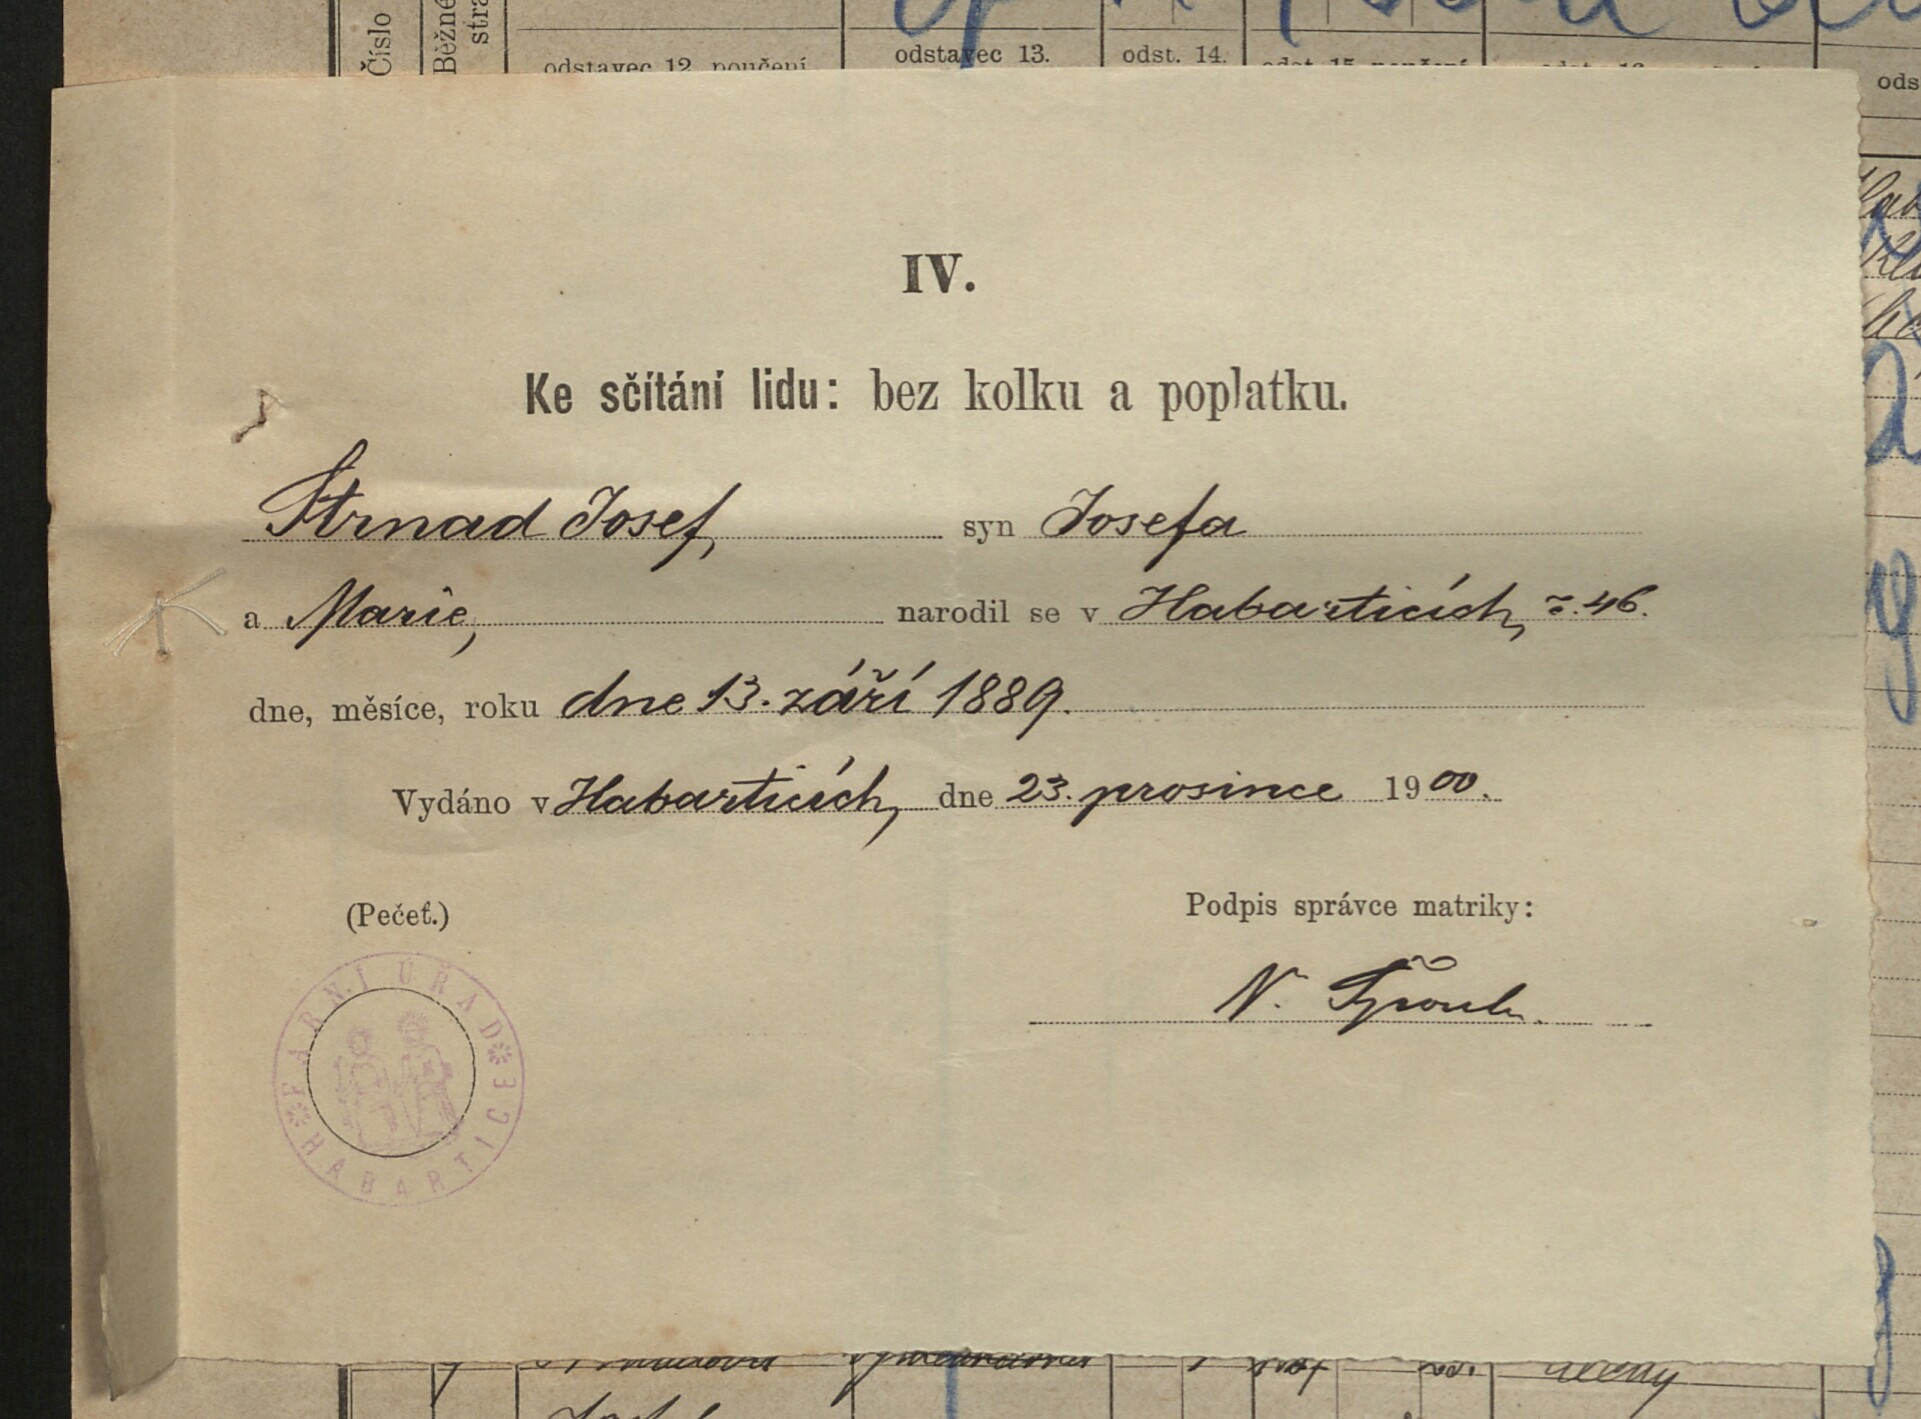 Číslo
Běžné
odstavec 12. poučení
odstavec 13.
odst. 14.
IV.
Ke sčítání lidu: bez kolku a poplatku.
Strnad Josef, syn Josefa
a Marie, narodil se v Habarticích, č. 46.
dne, měsíce, roku dne 13. září 1889.
Vydáno v Habarticích, dne 23. prosince 1900.
(Pečeť.)
Podpis správce matriky:
N.
FARNÍ ÚŘAD
HABARTICE